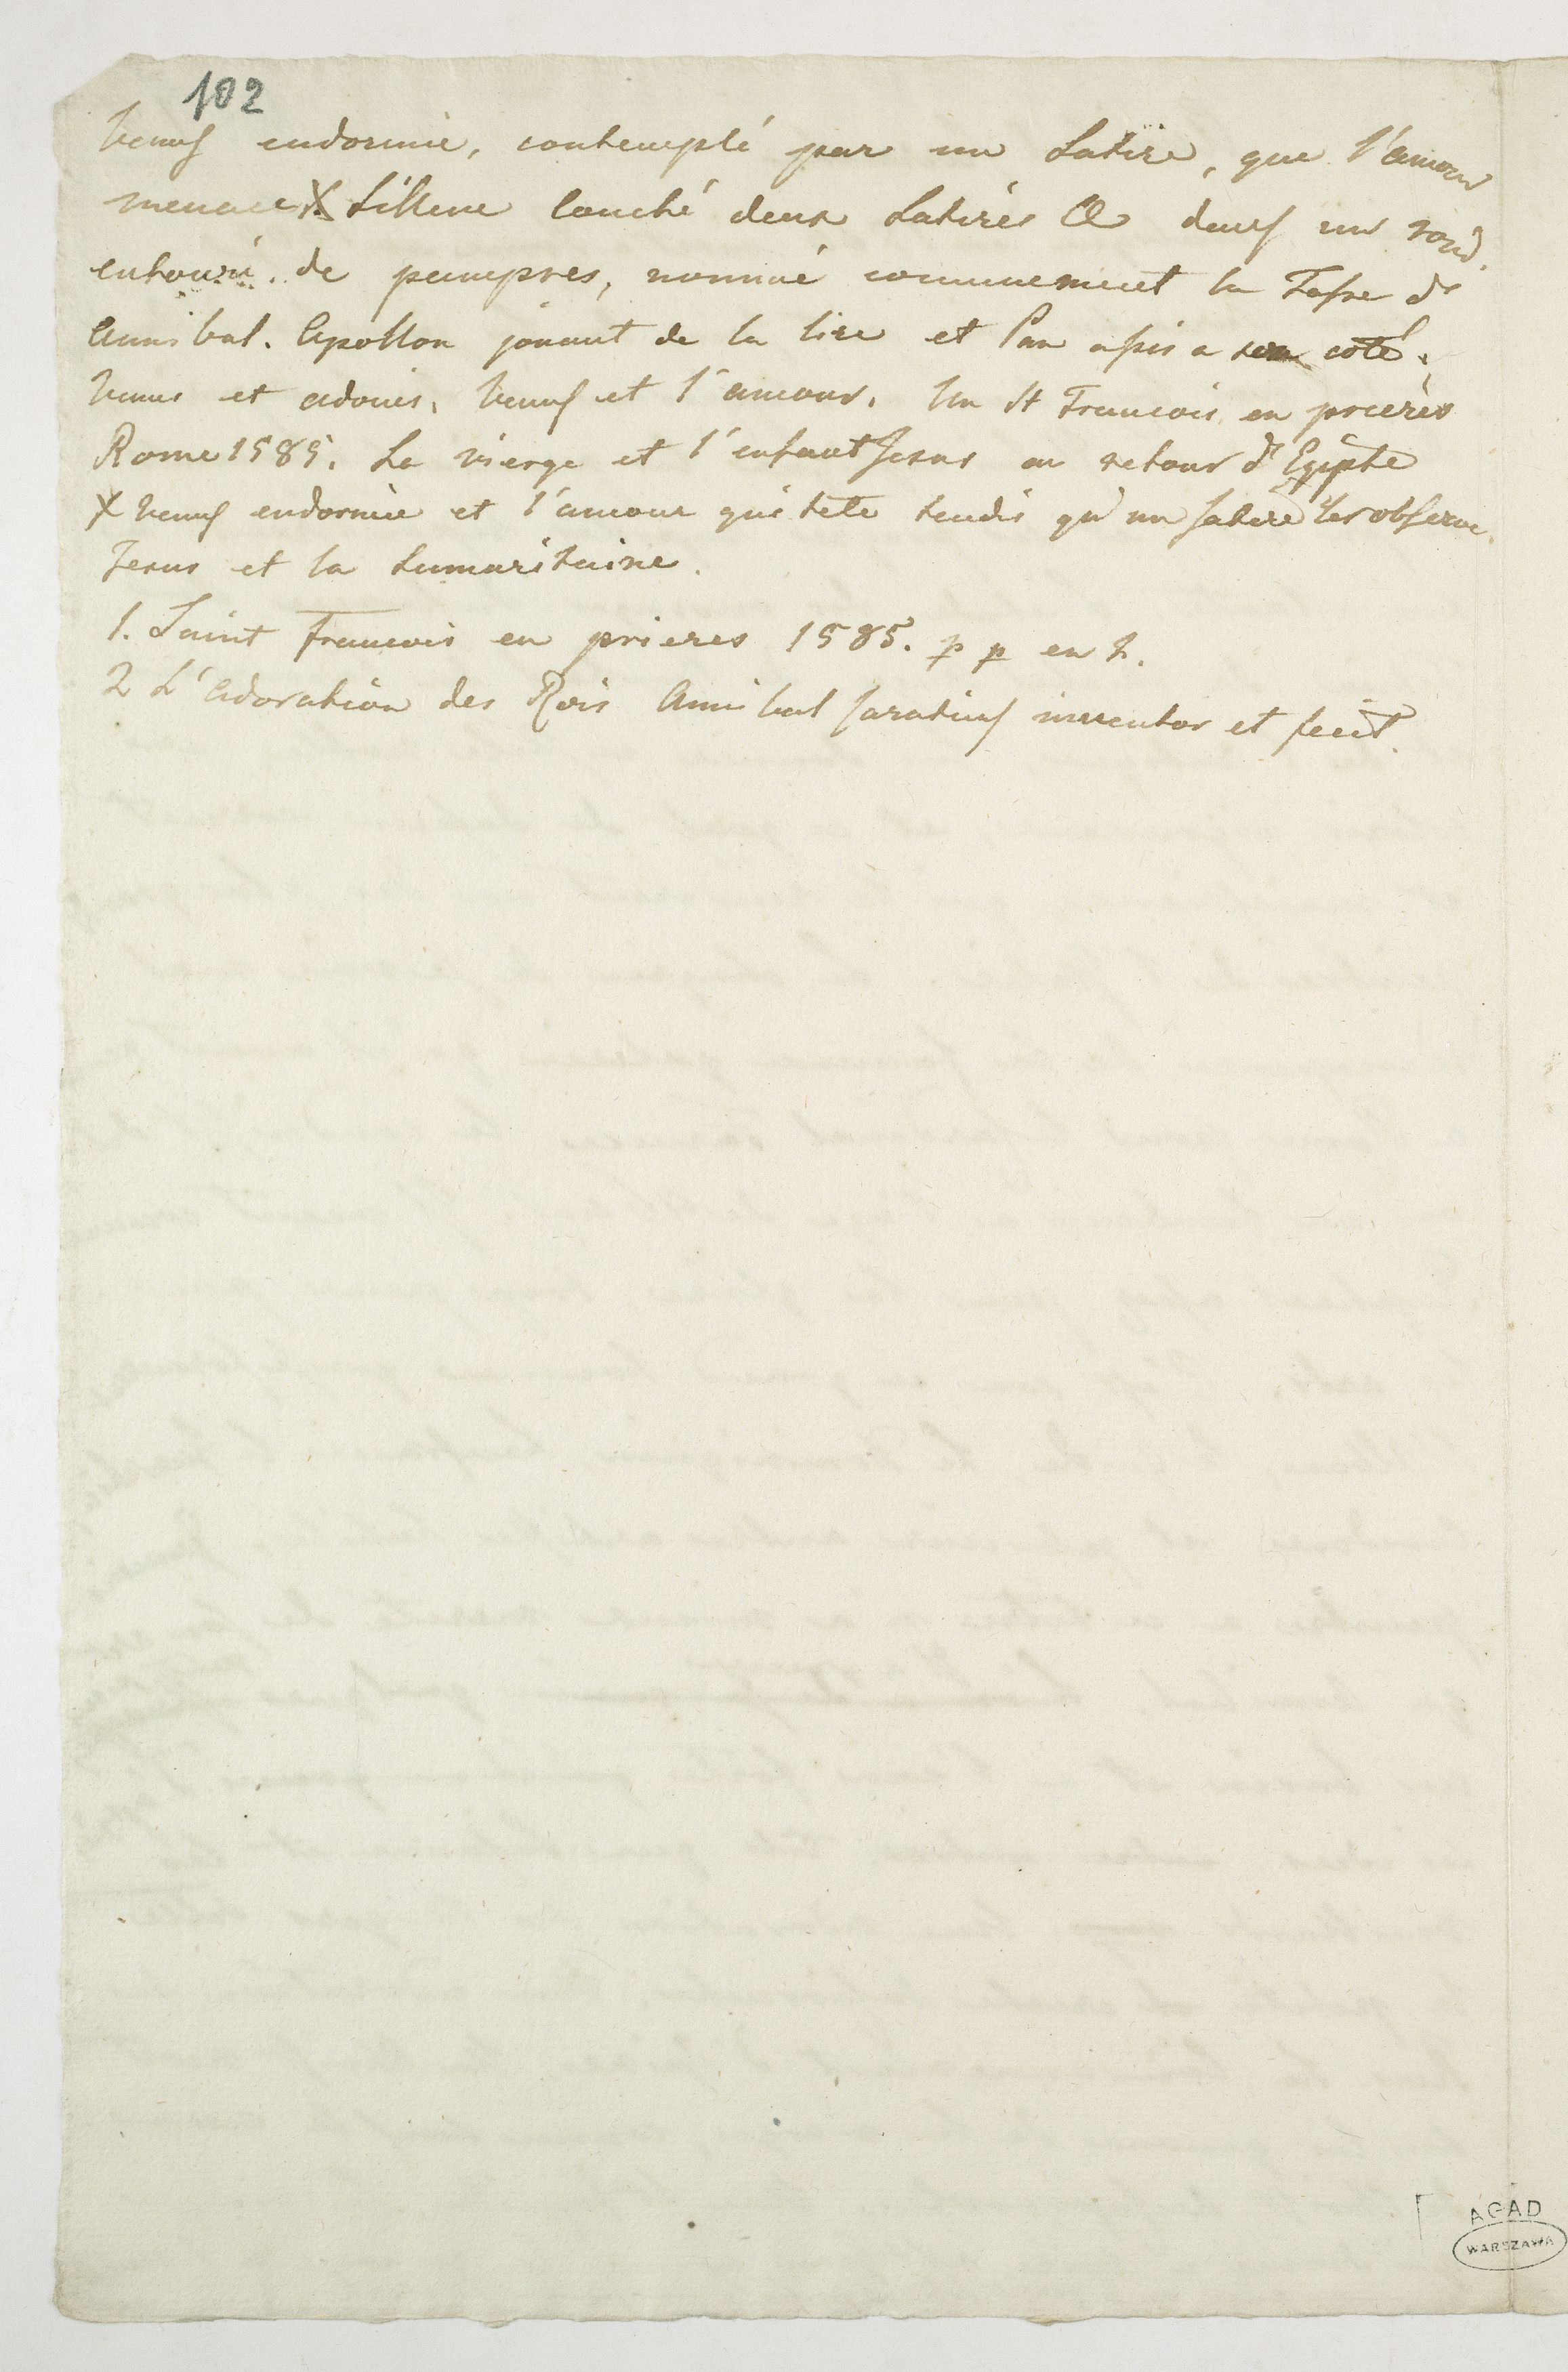 102
Venus endormie, contemplé par un Satire, que l'amour
menace X Sillene Couché deux Satires & dans un rond
entouré de pampres, nommé communement la Tasse de
Annibal. Apollon jouant de la lire et Pan assis a son coté.
Venus et adonis, Venus et l'amour. Un St Francois en prieres
Rome 1585. La vierge et l'enfant Jesus au retour d'Egipte
X Venus endormie et l'amour qui tete tandis qu'un Satire les observe.
Jesus et la Samaritaine.
1. Saint Francois en prieres 1585. p p en h.
2 L'Adoration des Rois Annibal Caratius inventor et fecit.
AGAD
WARSZAWA